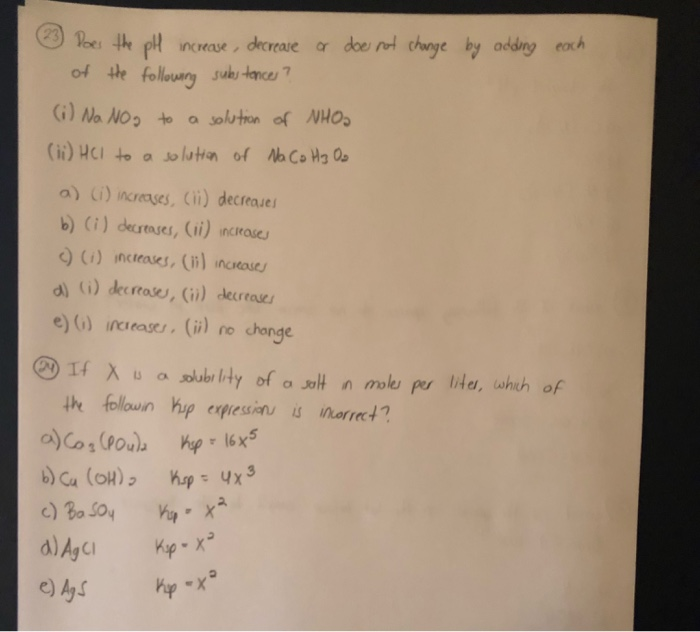 23 Does the pH increase, decrease or does not change by adding each
of the following substances?
(i) NaNO2 to a solution of NHO2
(ii) HCl to a solution of NaC2H3O2
a) (i) increases, (ii) decreases
b) (i) decreases, (ii) increases
c) (i) increases, (ii) increases
d) (i) decreases, (ii) decreases
e) (i) increases, (ii) no change
24 If X is a solubility of a salt in moles per liter, which of
the followin Ksp expression is incorrect?
a) Ca3(PO4)2 Ksp = 16x^5
b) Ca(OH)2 Ksp = 4x^3
c) BaSO4 Ksp = x^2
d) AgCl Ksp = x^2
e) AgS Ksp = x^2